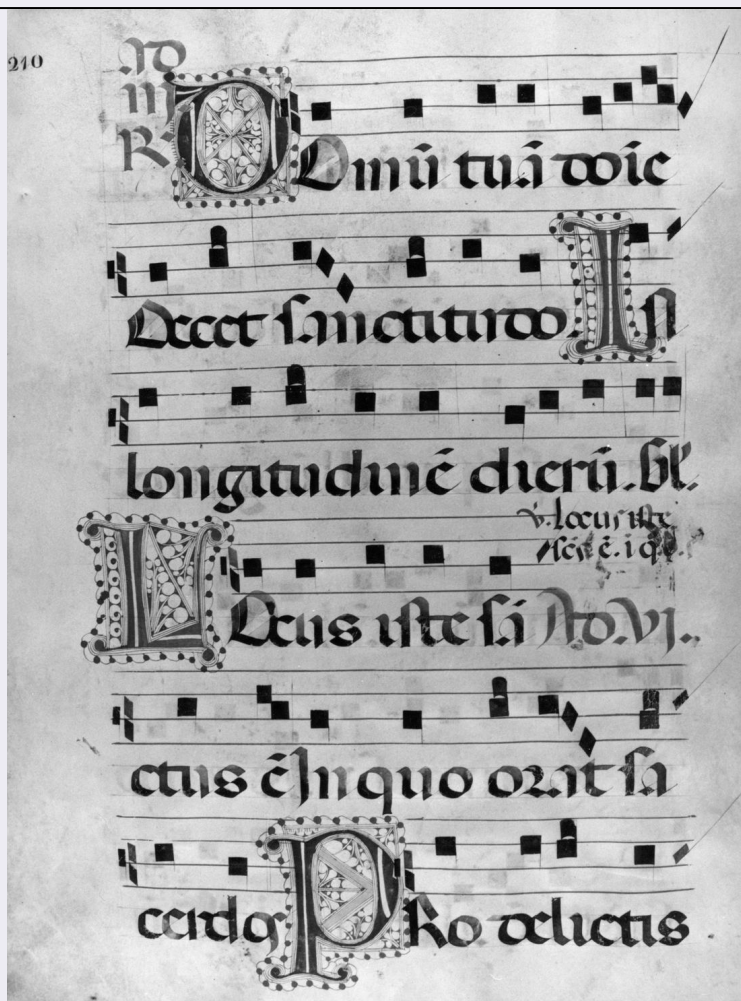 210
Ad
iii
R
DOmū tuā doīe
Decet sanctitudo. In
longitudinē dierū. Gl'.
v. Locus iste
scs ē. i q
LOcus iste sā Ad. VI.
ctus ē In quo orat sa
cerdos PRo delictis